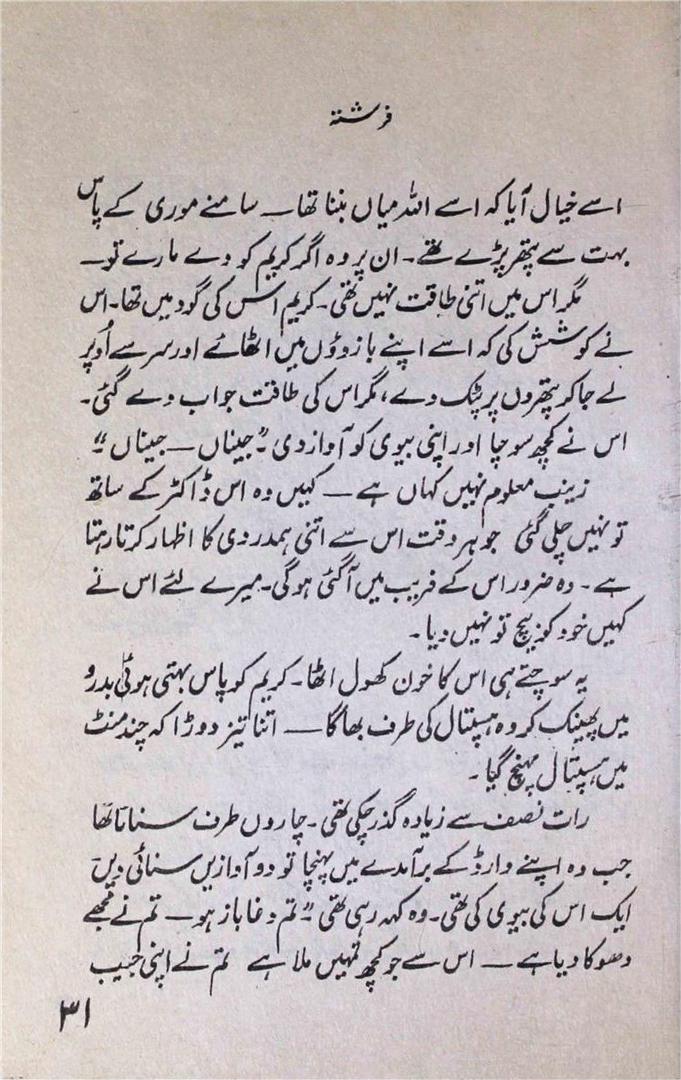 فرشتہ
اسے خیال آیا کہ اسے اللہ میاں بننا تھا ــ سامنے موری کے پاس
بہت سے پتھر پڑے تھے۔ ان پر وہ اگر کریم کو دے مارے تو ــ
مگر اس میں اتنی طاقت نہیں تھی۔ کریم اس کی گود میں تھا۔ اس
نے کوشش کی کہ اسے اپنے بازوؤں میں اٹھائے اور سر سے اُوپر
لے جا کر پتھروں پر پٹک دے، مگر اس کی طاقت جواب دے گئی۔
اس نے کچھ سوچا اور اپنی بیوی کو آواز دی۔ ”جیناں ــ جیناں“۔
زینب معلوم نہیں کہاں ہے ــ کہیں وہ اس ڈاکٹر کے ساتھ
تو نہیں چلی گئی جو ہر وقت اس سے اتنی ہمدردی کا اظہار کرتا رہتا
ہے۔ وہ ضرور اس کے فریب میں آگئی ہوگی۔ میرے لئے اس نے
کہیں خود کو بیچ تو نہیں دیا۔
یہ سوچتے ہی اس کا خون کھول اٹھا۔ کریم کو پاس بہتی ہوئی بدرو
میں پھینک کر وہ ہسپتال کی طرف بھاگا ــ اتنا تیز دوڑا کہ چند منٹ
میں ہسپتال پہنچ گیا۔
رات نصف سے زیادہ گذر چکی تھی۔ چاروں طرف سناٹا تھا
جب وہ اپنے وارڈ کے برآمدے میں پہنچا تو دو آوازیں سنائی دیں
ایک اس کی بیوی کی تھی۔ وہ کہہ رہی تھی ”تم دغا باز ہو ــ تم نے مجھے
دھوکا دیا ہے ــ اس سے جو کچھ تمہیں ملا ہے تم نے اپنی جیب
۳۱